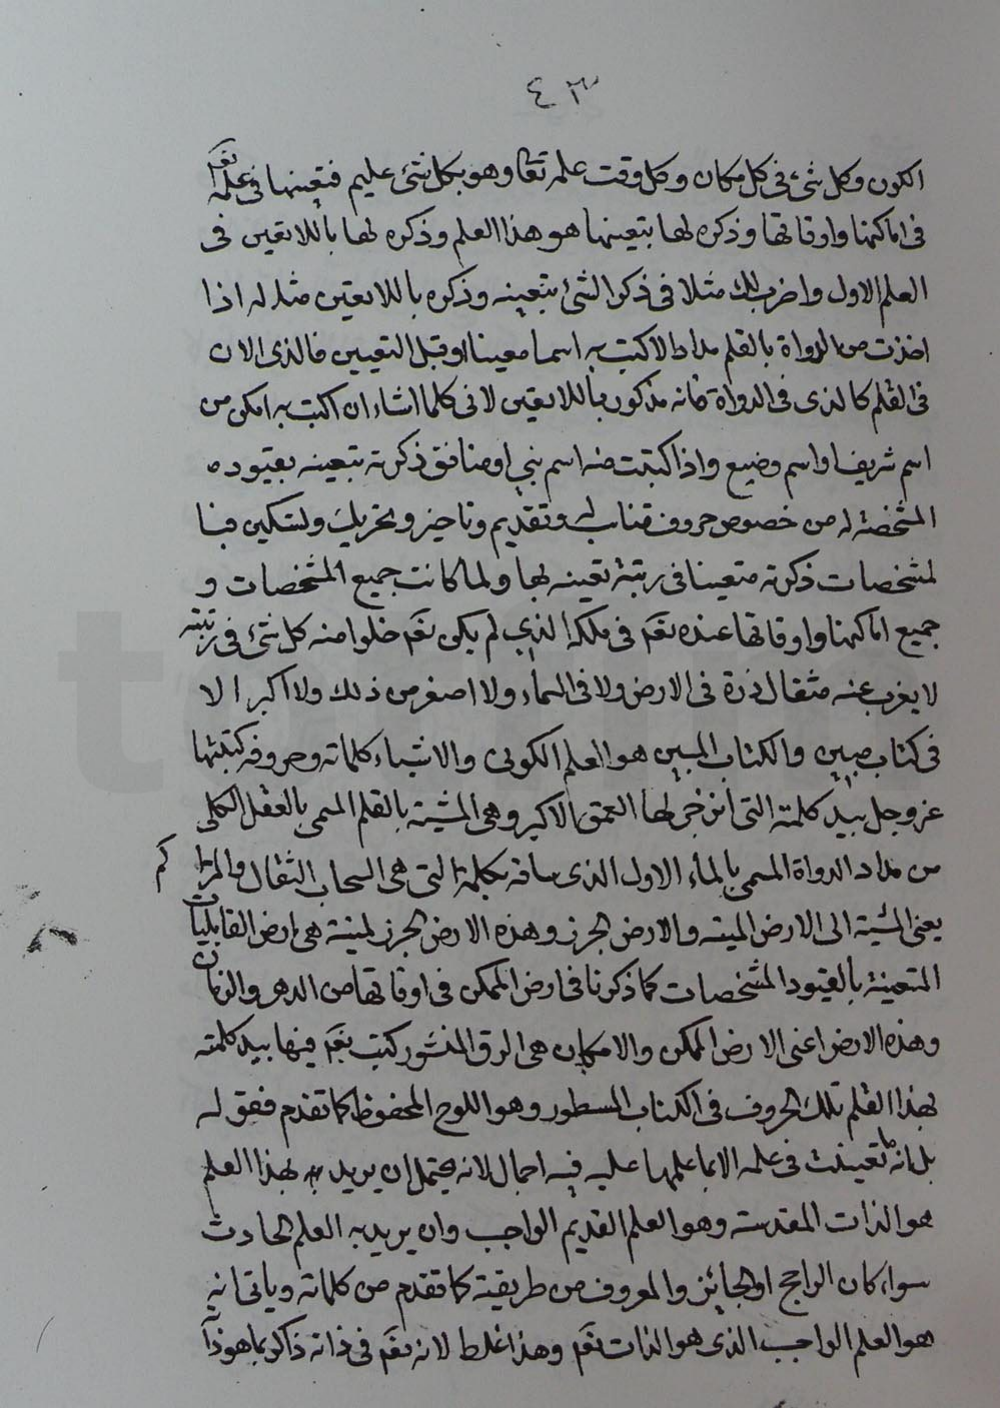 ٤٣
الكون وكل شئ فى كل مكان وكل وقت علمه تعا وهو بكل شئ عليم فتعينها فى علمه تعم
فى اماكنها واوقاتها وذكره لها بتعينها هو هذا العلم وذكره لها باللاتعين فى
العلم الاول واضرب لك مثلا فى ذكر الشئ بتعينه وذكره باللاتعين مثله اذا
اخذت من الدواة بالقلم مدادا لاكتب به اسما معينا او قبل التعيين فالذى الان
فى القلم كالذى فى الدواة فانه مذكور باللاتعين لانى كلما اشاء ان اكتب به امكن من
اسم شريف او اسم وضيع واذا كتبت منه اسم نبى او منافق ذكرته بتعينه بقيوده
المشخصة له من خصوص حروف وتقديم وتاخير وتحريك وتسكين فبا
لمشخصات ذكرته متعينا فى رتبة تعينه بها ولما كانت جميع المشخصات و
جميع اماكنها واوقاتها عنده تعم فى ملكه الذى لم يكن تعم خلوا منه كل شئ فى رتبته
لا يغرب عنه مثقال ذرة فى الارض ولا فى السماء ولا اصغر من ذلك ولا اكبر الا
فى كتاب مبين والكتاب المبين هو العلم الكونى والاشياء كلماته وحروفه كتبتها
عز وجل بيد كلمته التى انزجر لها العمق الاكبر وهى المشية بالقلم المسمى بالعقل الكلى
من مداد الدواة المسمى بالماء الاول الذى ساقه بكلمته التى هى السحاب الثقال والمتراكم
يعنى المشية الى الارض الميتة والارض الجرز وهذه الارض الجرز الميتة هى ارض القابليات
المتعينة بالقيود المشخصات كما ذكرنا فى ارض الممكن فى اوقاتها من الدهر والزمان
وهذه الارض اعنى الارض الممكن والامكان هى الرق المنشور كتب تعم فيها بيد كلمته
بهذا القلم تلك الحروف فى الكتاب المسطور وهو اللوح المحفوظ كما تقدم فقوله
بل انما تعينت فى علمه الا بما علمها عليه فيه اجمال لانه يحتمل ان يريد به بهذا العلم
هو الذات المقدسة وهو العلم القديم الواجب وان يريد به العلم الحادث
سواء كان الراجح او الجائز والمعروف من طريقته كما تقدم من كلماته وياتى انه
هو العلم الواجب الذى هو الذات تعم وهذا غلط لانه تعم فى ذاته ذاكر بما هو